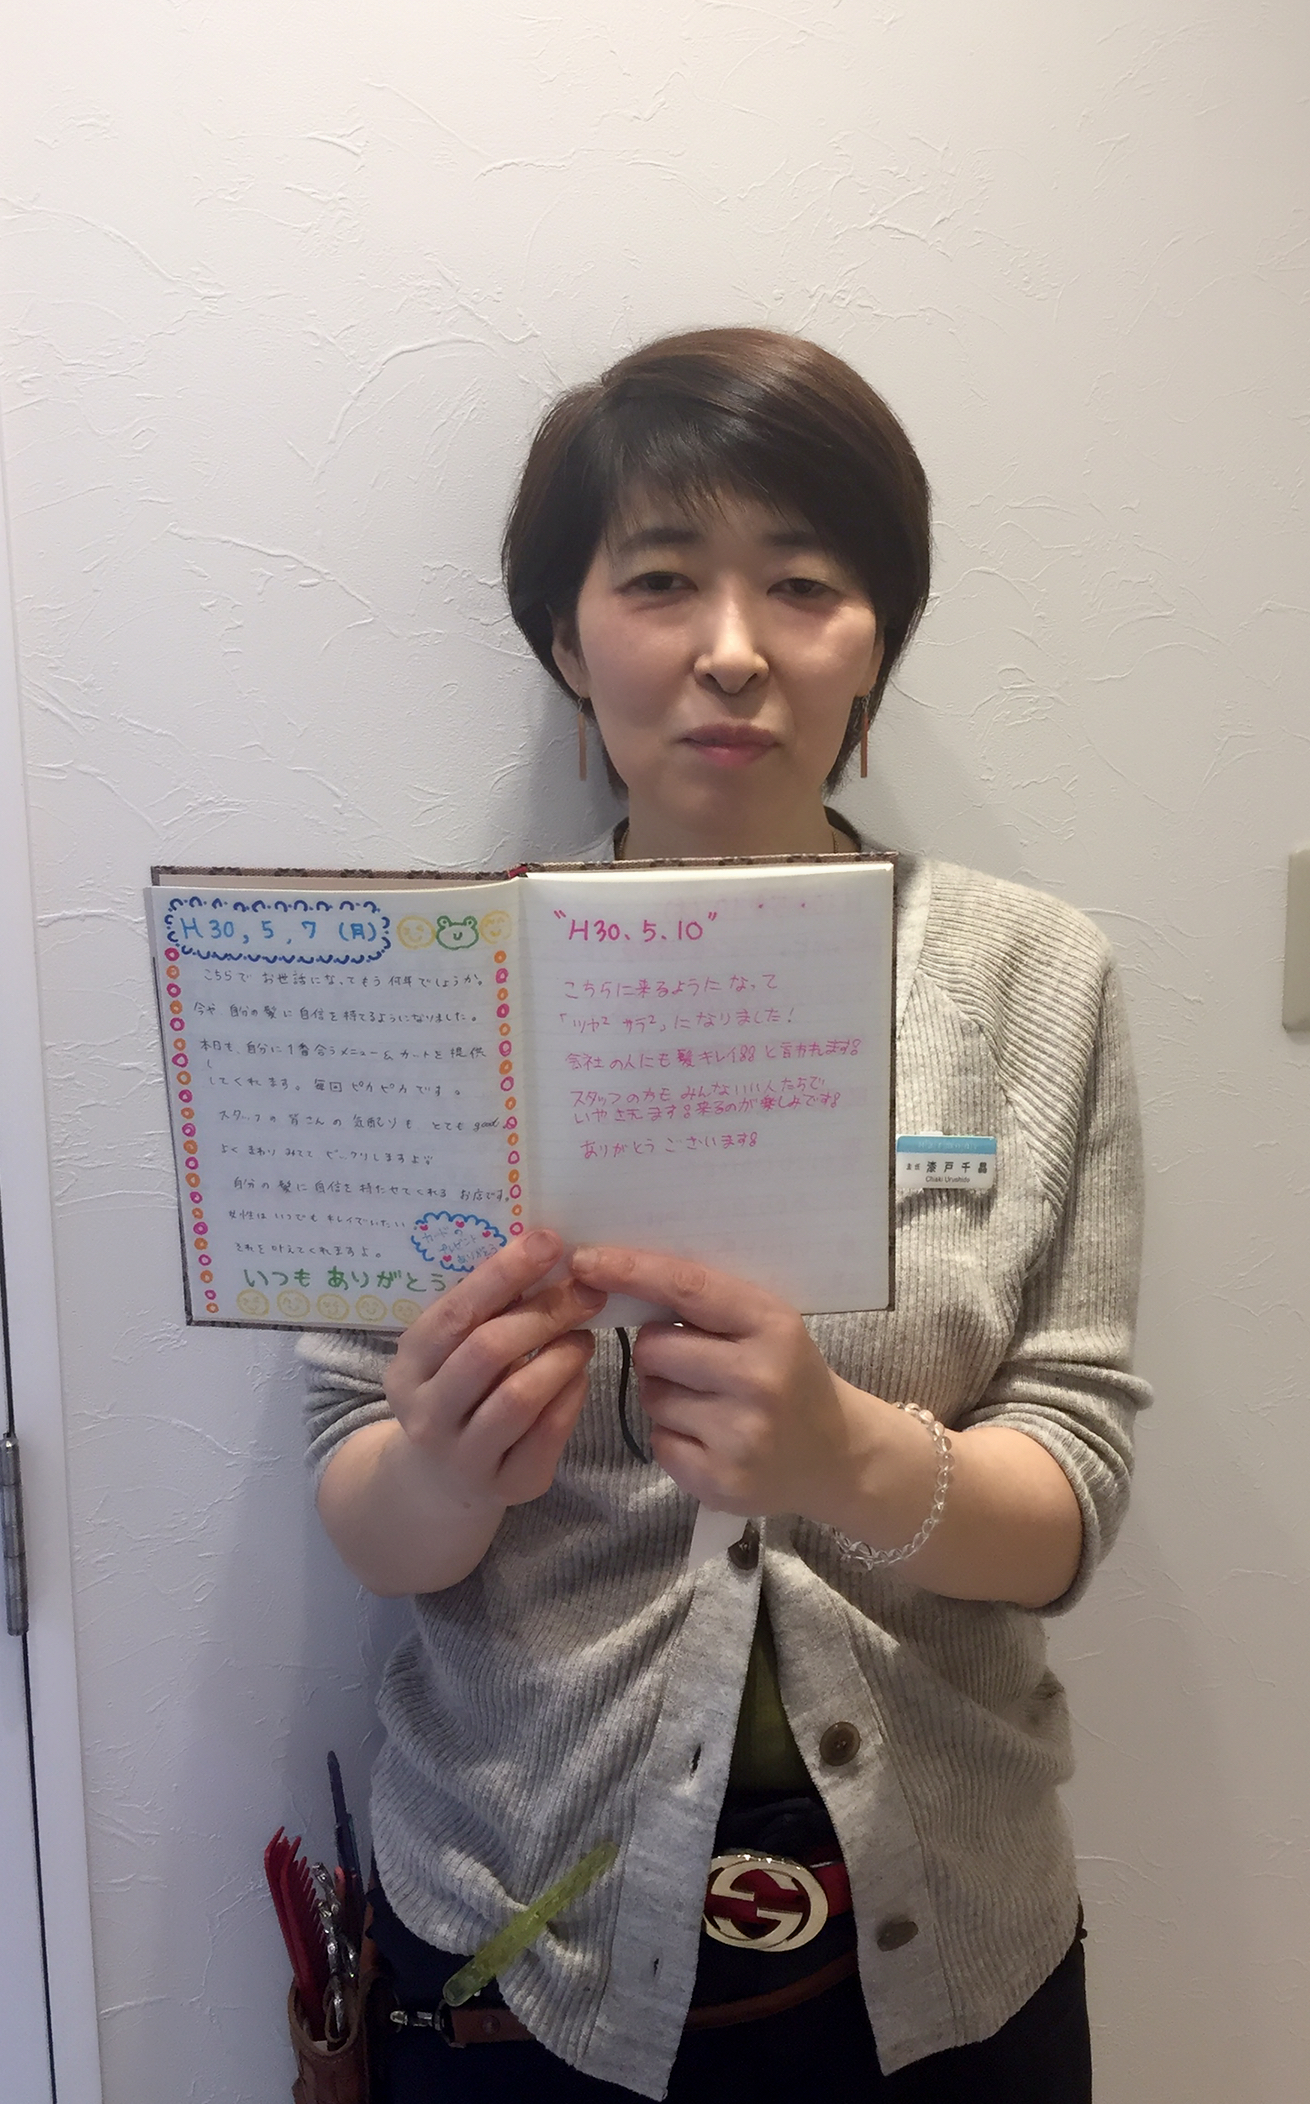 H30,5,7(月)
こちらで お世話になってもう何年でしょうか。
今や 自分の髪に自信を持てるようになりました。
本日も、自分に1番合うメニュー&カットを提供
してくれます。毎回ピカピカです。
スタッフの皆さんの気配りも とてもgood
よくまわりみてて ビックリしますよ
自分の髪に自信を持たせてくれる お店です。
女性はいつでもキレイでいたい
それを叶えてくれますよ。
カードの
プレゼント
ありがとう
いつもありがとう
"H30、5、10"
こちらに来るようになって
「ツヤ2 サラ2」になりました!
会社の人にも髪キレイ!!と言われます!
スタッフの方も みんないい人たちで
いやされます!来るのが楽しみです!
ありがとうございます!
漆戸千晶
Chiaki Urushido